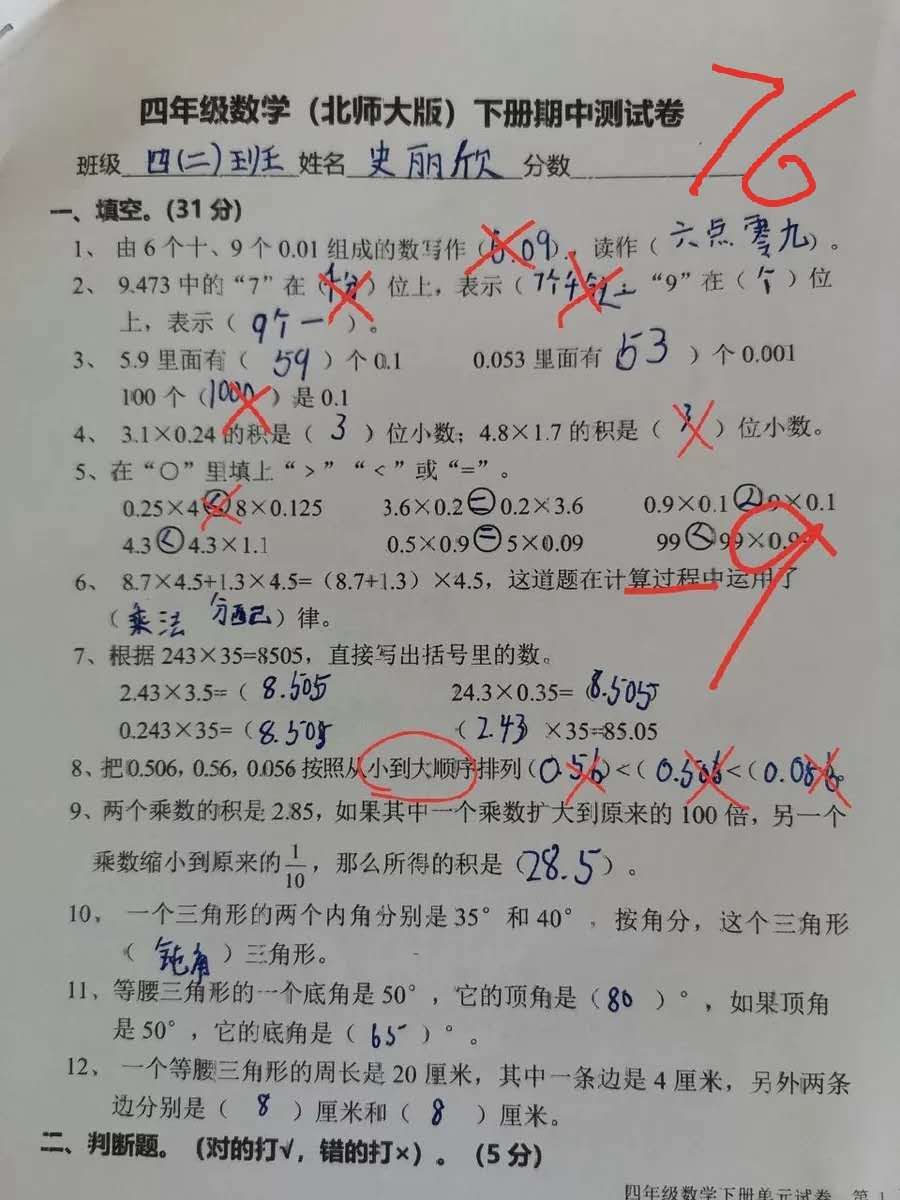 76
四年级数学（北师大版）下册期中测试卷
班级 四(二)班 姓名 史丽欣 分数
一、填空。(31分)
1、由6个十、9个0.01组成的数写作（6.09），读作（六点零九）。
2、9.473中的“7”在（十分）位上，表示（ ），“9”在（个）位
上，表示（9个一）。
3、5.9里面有（59）个0.1 0.053里面有 53 ）个0.001
100个（1000）是0.1
4、3.1×0.24的积是（3）位小数；4.8×1.7的积是（3）位小数。
5、在“○”里填上“>”“<”或“=”。
0.25×4 < 8×0.125 3.6×0.2 = 0.2×3.6 0.9×0.1 9×0.1
4.3 < 4.3×1.1 0.5×0.9 = 5×0.09 99 99×0.9
6、8.7×4.5+1.3×4.5=（8.7+1.3）×4.5，这道题在计算过程中运用了
（乘法 分配）律。
7、根据243×35=8505，直接写出括号里的数。
2.43×3.5=（8.505 24.3×0.35=（8.505
0.243×35=（8.505 （2.43 ×35=85.05
8、把0.506，0.56，0.056按照从小到大顺序排列（0.56）<（0.506<（0.056。
9、两个乘数的积是2.85，如果其中一个乘数扩大到原来的100倍，另一个
乘数缩小到原来的1/10，那么所得的积是（28.5）。
10、一个三角形的两个内角分别是35°和40°，按角分，这个三角形
（钝角）三角形。
11、等腰三角形的一个底角是50°，它的顶角是（80）°，如果顶角
是50°，它的底角是（65）°。
12、一个等腰三角形的周长是20厘米，其中一条边是4厘米，另外两条
边分别是（8）厘米和（8）厘米。
二、判断题。（对的打√，错的打×）。（5分）
四年级数学下册单元试卷 第1